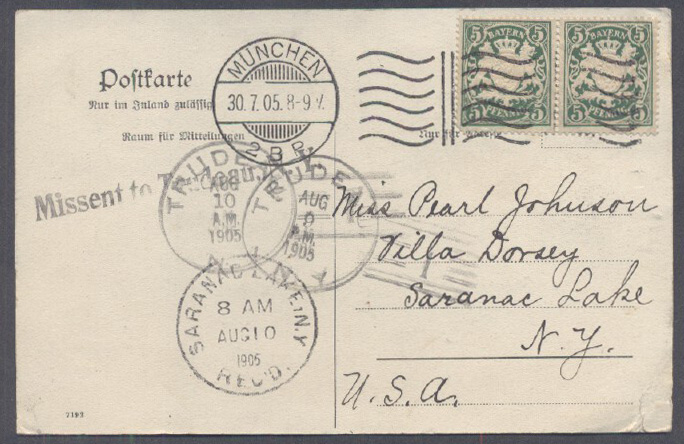 5 BAYERN 5
5 PFENNIG 5
5 BAYERN 5
5 PFENNIG 5
MÜNCHEN
30.7.05.8-9 V.
2 B.P.
Postkarte
Nur im Inland zulässig
Raum für Mitteilungen
Nur für Adresse
Missent to
TRUDEAU
AUG
10
A.M.
1905
N.Y.
TRUDE
AUG
A.M.
1905
N.Y.
Miss Pearl Johnson
Villa Dorsey
Saranac Lake
N.Y.
U.S.A.
SARANAC LAKE, N.Y.
8 AM
AUG 10
1905
REC'D.
7193